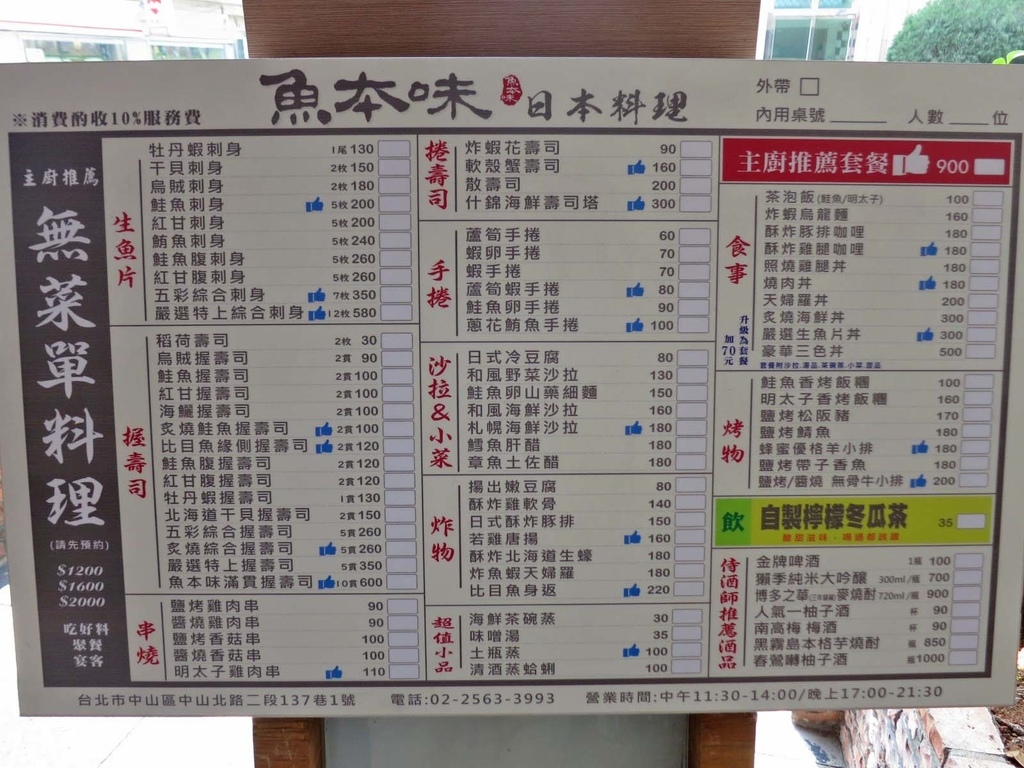 ※消費酌收10%服務費
魚本味
魚本味
日本料理
外帶
內用桌號 人數 位
主廚推薦
無菜單料理
(請先預約)
$1200
$1600
$2000
吃好料
聚餐
宴客
生魚片
牡丹蝦刺身 1尾 130
干貝刺身 2枚 150
烏賊刺身 2枚 180
鮭魚刺身 5枚 200
紅甘刺身 5枚 200
鮪魚刺身 5枚 240
鮭魚腹刺身 5枚 260
紅甘腹刺身 5枚 260
五彩綜合刺身 7枚 350
嚴選特上綜合刺身 12枚 580
握壽司
稻荷壽司 2枚 30
烏賊握壽司 2貫 90
鮭魚握壽司 2貫 100
紅甘握壽司 2貫 100
海鱺握壽司 2貫 100
炙燒鮭魚握壽司 2貫 100
比目魚緣側握壽司 2貫 120
鮭魚腹握壽司 2貫 120
紅甘腹握壽司 2貫 120
牡丹蝦握壽司 1貫 130
北海道干貝握壽司 2貫 150
五彩綜合握壽司 5貫 260
炙燒綜合握壽司 5貫 260
嚴選特上握壽司 5貫 350
魚本味滿貫握壽司 10貫 600
串燒
鹽烤雞肉串 90
醬燒雞肉串 90
鹽烤香菇串 100
醬燒香菇串 100
明太子雞肉串 110
捲壽司
炸蝦花壽司 90
軟殼蟹壽司 160
散壽司 200
什錦海鮮壽司塔 300
手捲
蘆筍手捲 60
蝦卵手捲 70
蝦手捲 70
蘆筍蝦手捲 80
鮭魚卵手捲 90
蔥花鮪魚手捲 100
沙拉&小菜
日式冷豆腐 80
和風野菜沙拉 130
鮭魚卵山藥細麵 150
和風海鮮沙拉 160
札幌海鮮沙拉 180
鱈魚肝醋 180
章魚土佐醋 180
炸物
揚出嫩豆腐 80
酥炸雞軟骨 140
日式酥炸豚排 150
若雞唐揚 160
酥炸北海道生蠔 180
炸魚蝦天婦羅 180
比目魚身返 220
超值小品
海鮮茶碗蒸 30
味噌湯 35
土瓶蒸 100
清酒蒸蛤蜊 100
主廚推薦套餐 900
食事
升級為套餐
加70元
茶泡飯(鮭魚/明太子) 100
炸蝦烏龍麵 160
酥炸豚排咖哩 180
酥炸雞腿咖哩 180
照燒雞腿丼 180
燒肉丼 180
天婦羅丼 200
炙燒海鮮丼 300
嚴選生魚片丼 300
豪華三色丼 500
套餐附沙拉.湯品.茶碗蒸.小菜.甜品
烤物
鮭魚香烤飯糰 100
明太子香烤飯糰 160
鹽烤松阪豬 170
鹽烤鯖魚 180
蜂蜜優格羊小排 180
鹽烤帶子香魚 180
鹽烤/醬燒 無骨牛小排 200
飲
自製檸檬冬瓜茶 35
酸甜滋味．喝過都說讚
侍酒師推薦酒品
金牌啤酒 1瓶 100
獺季純米大吟釀 300ml/瓶 700
博多之華(三年貯藏)麥燒酎 720ml/瓶 900
人氣一柚子酒 杯 90
南高梅 梅酒 杯 90
黑霧島本格芋燒酎 瓶 850
春鶯囀柚子酒 瓶 1000
台北市中山區中山北路二段137巷1號 電話:02-2563-3993 營業時間:中午11:30-14:00/晚上17:00-21:30